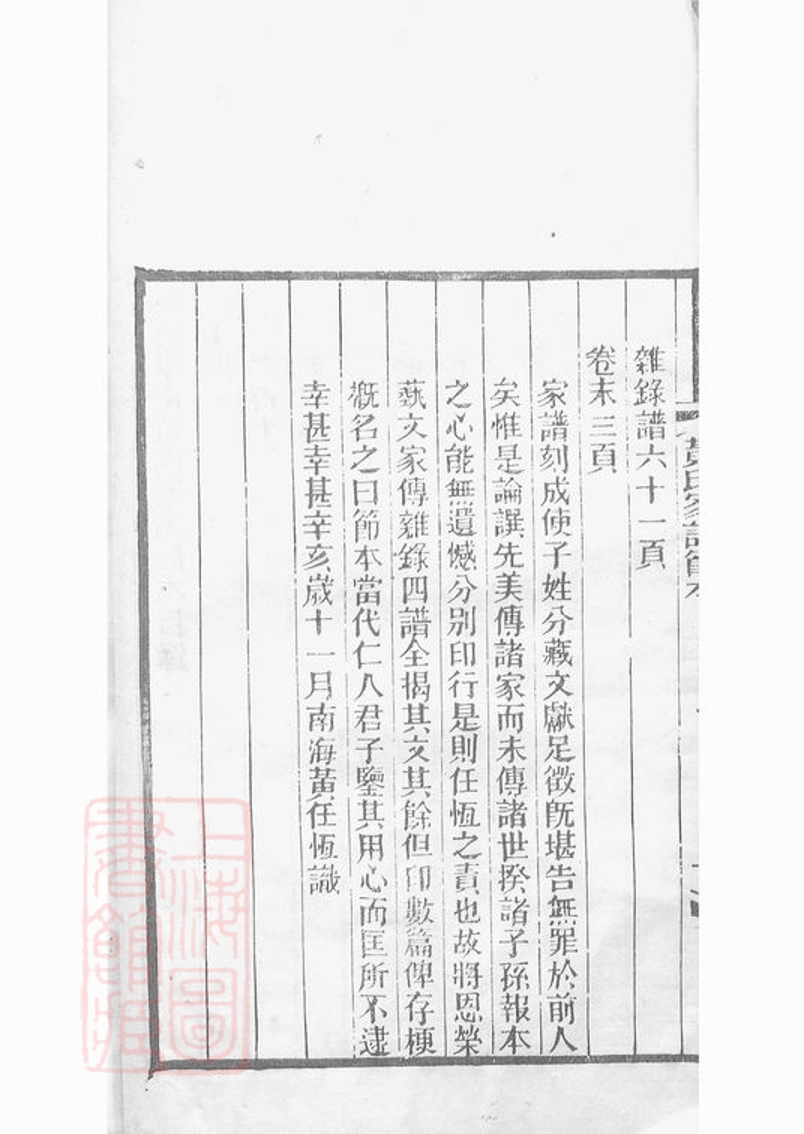 雜錄譜六十一頁
卷末三頁
家譜刻成使子姓分藏文獻足徵旣堪告無罪於前人
矣惟是論譔先美傳諸家而未傳諸世揆諸子孫報本
之心能無遺憾分別印行是則任恆之責也故將恩榮
蓺文家傳雜錄四譜全揭其文其餘但印數篇俾存梗
槪名之曰節本當代仁人君子鑒其用心而匡所不逮
幸甚幸甚辛亥歲十一月南海黃任恆識
黃氏家譜節本
上海圖
書館藏